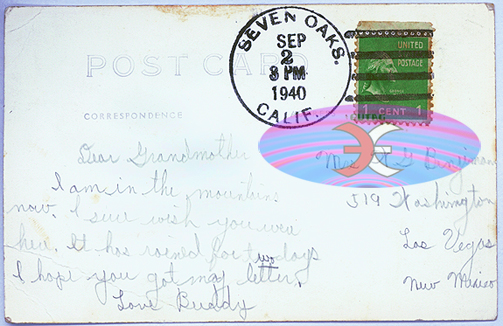 SEVEN OAKS.
SEP
2
3 PM
1940
CALIF.
UNITED
POSTAGE
1 CENT 1
POST CARD
CORRESPONDENCE
Dear Grandmother
I am in the mountains
now. I sure wish you were
here. It has rained for two days
I hope you got my letter.
Love Buddy
Mrs
519 Washington
Las Vegas
New Mexico